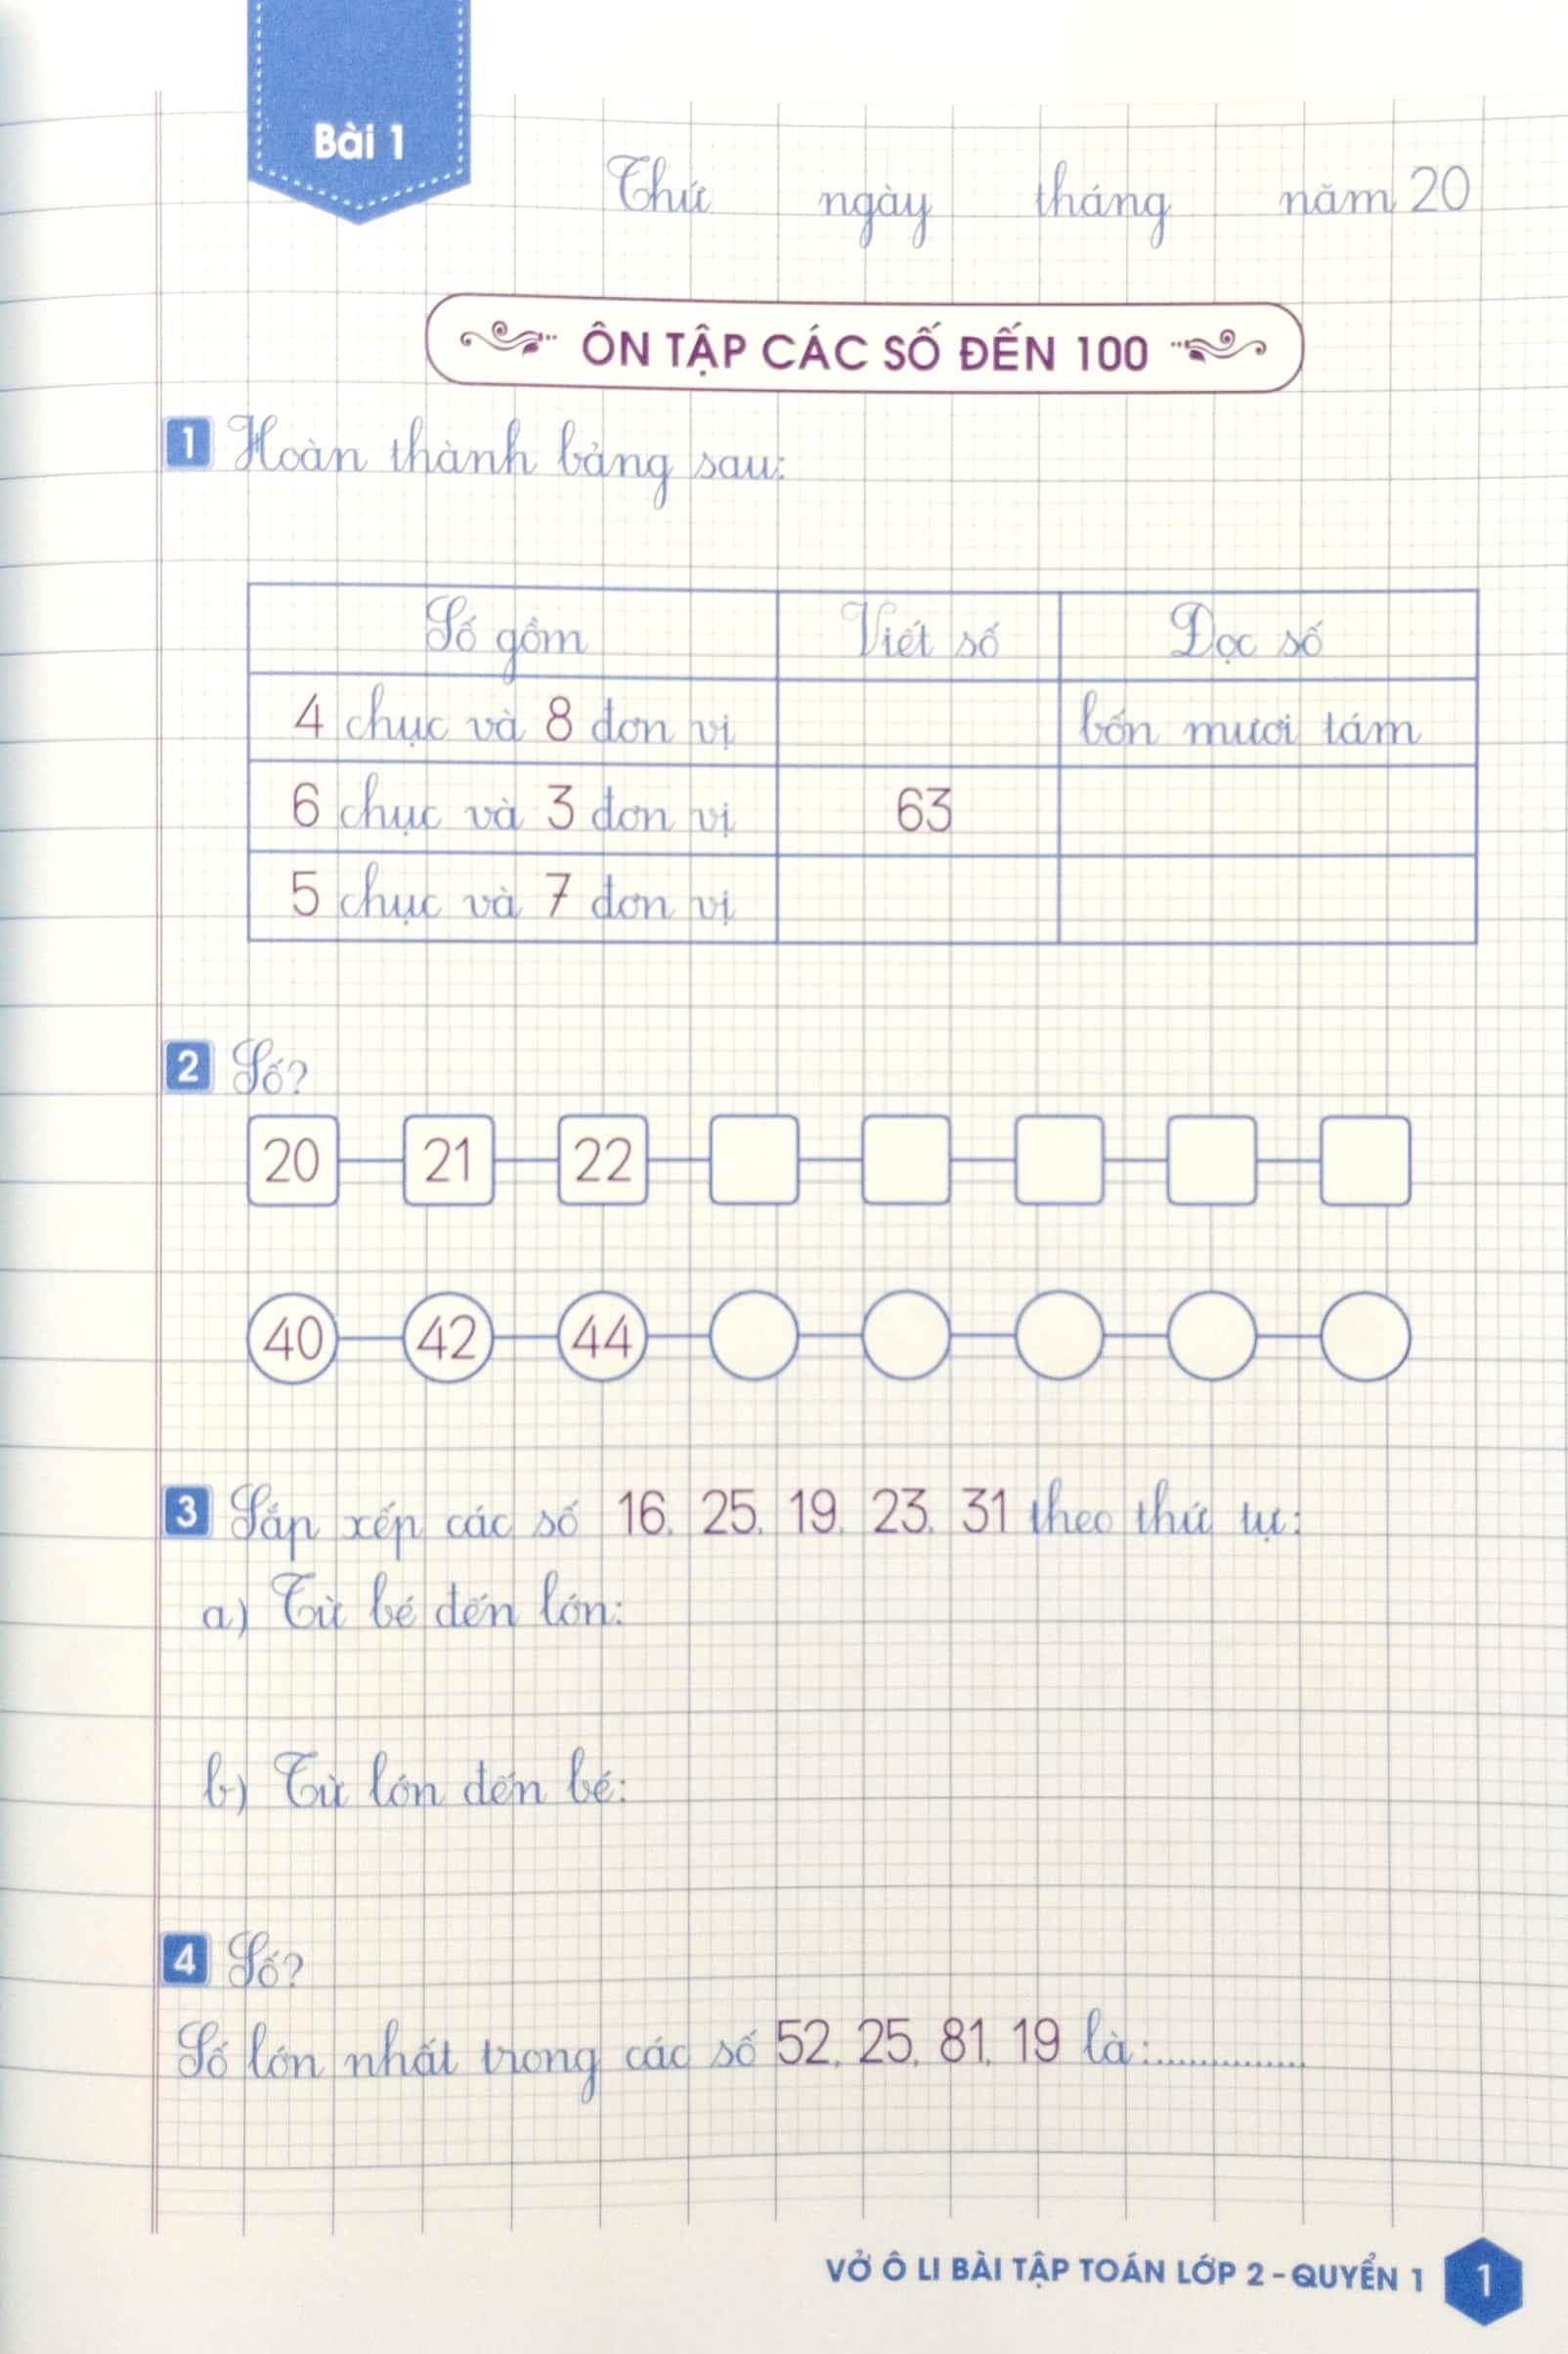 Bài 1
Thứ ngày tháng năm 20
ÔN TẬP CÁC SỐ ĐẾN 100
1 Hoàn thành bảng sau:
Số gồm Viết số Đọc số
4 chục và 8 đơn vị bốn mươi tám
6 chục và 3 đơn vị 63
5 chục và 7 đơn vị
2 Số?
20 21 22
40 42 44
3 Sắp xếp các số 16, 25, 19, 23, 31 theo thứ tự:
a) Từ bé đến lớn:
b) Từ lớn đến bé:
4 Số?
Số lớn nhất trong các số 52, 25, 81, 19 là:..............
VỞ Ô LI BÀI TẬP TOÁN LỚP 2 - QUYỂN 1 1